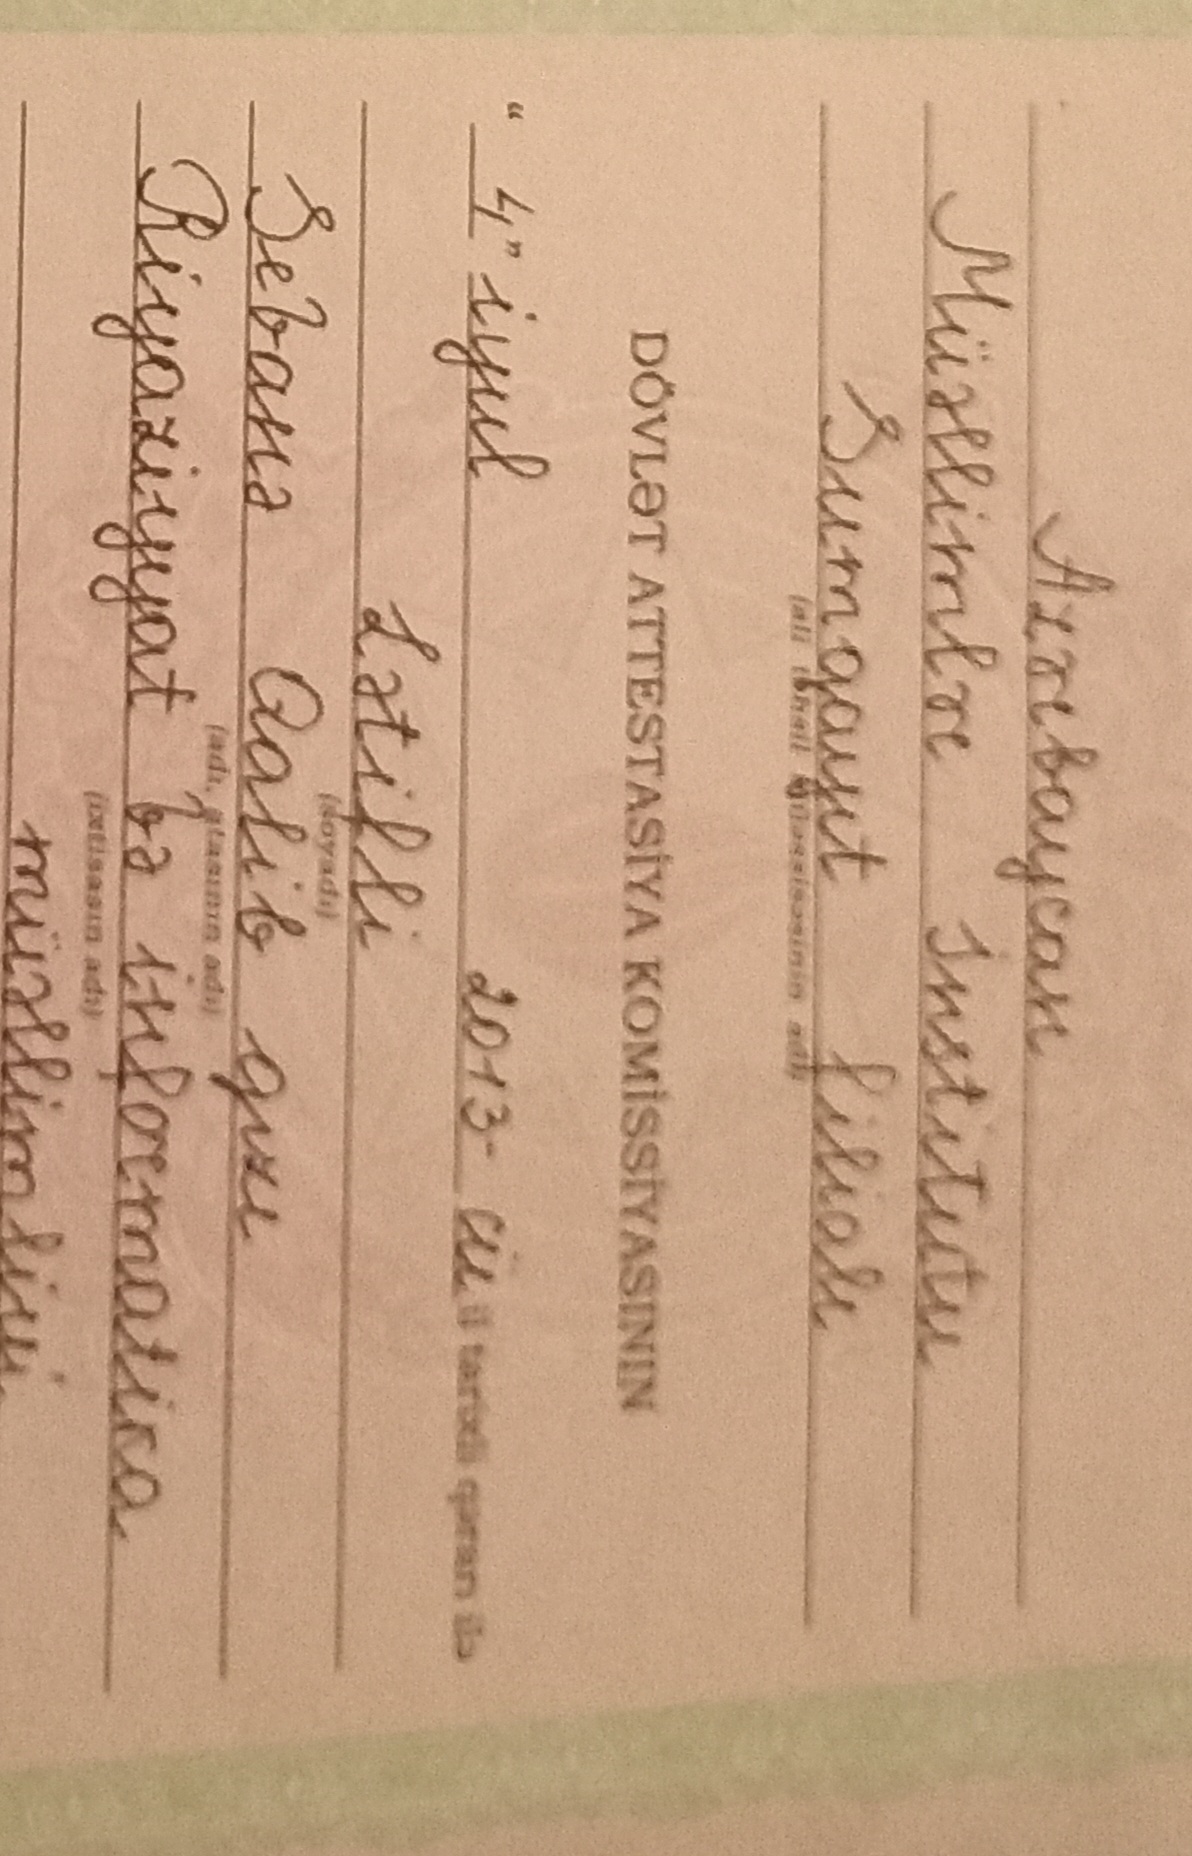 Azərbaycan
Müəllimlər İnstitutu
Sumqayıt filialı
(ali təhsil müəssisəsinin adı)
DÖVLƏT ATTESTASİYA KOMİSSİYASININ
" 4 " iyul 2013- cü il tarixli qərarı ilə
Lətifli
(soyadı)
Səbanə Qalib qızı
(adı, atasının adı)
Riyaziyyat və informatika
(ixtisasın adı)
müəllimliyi